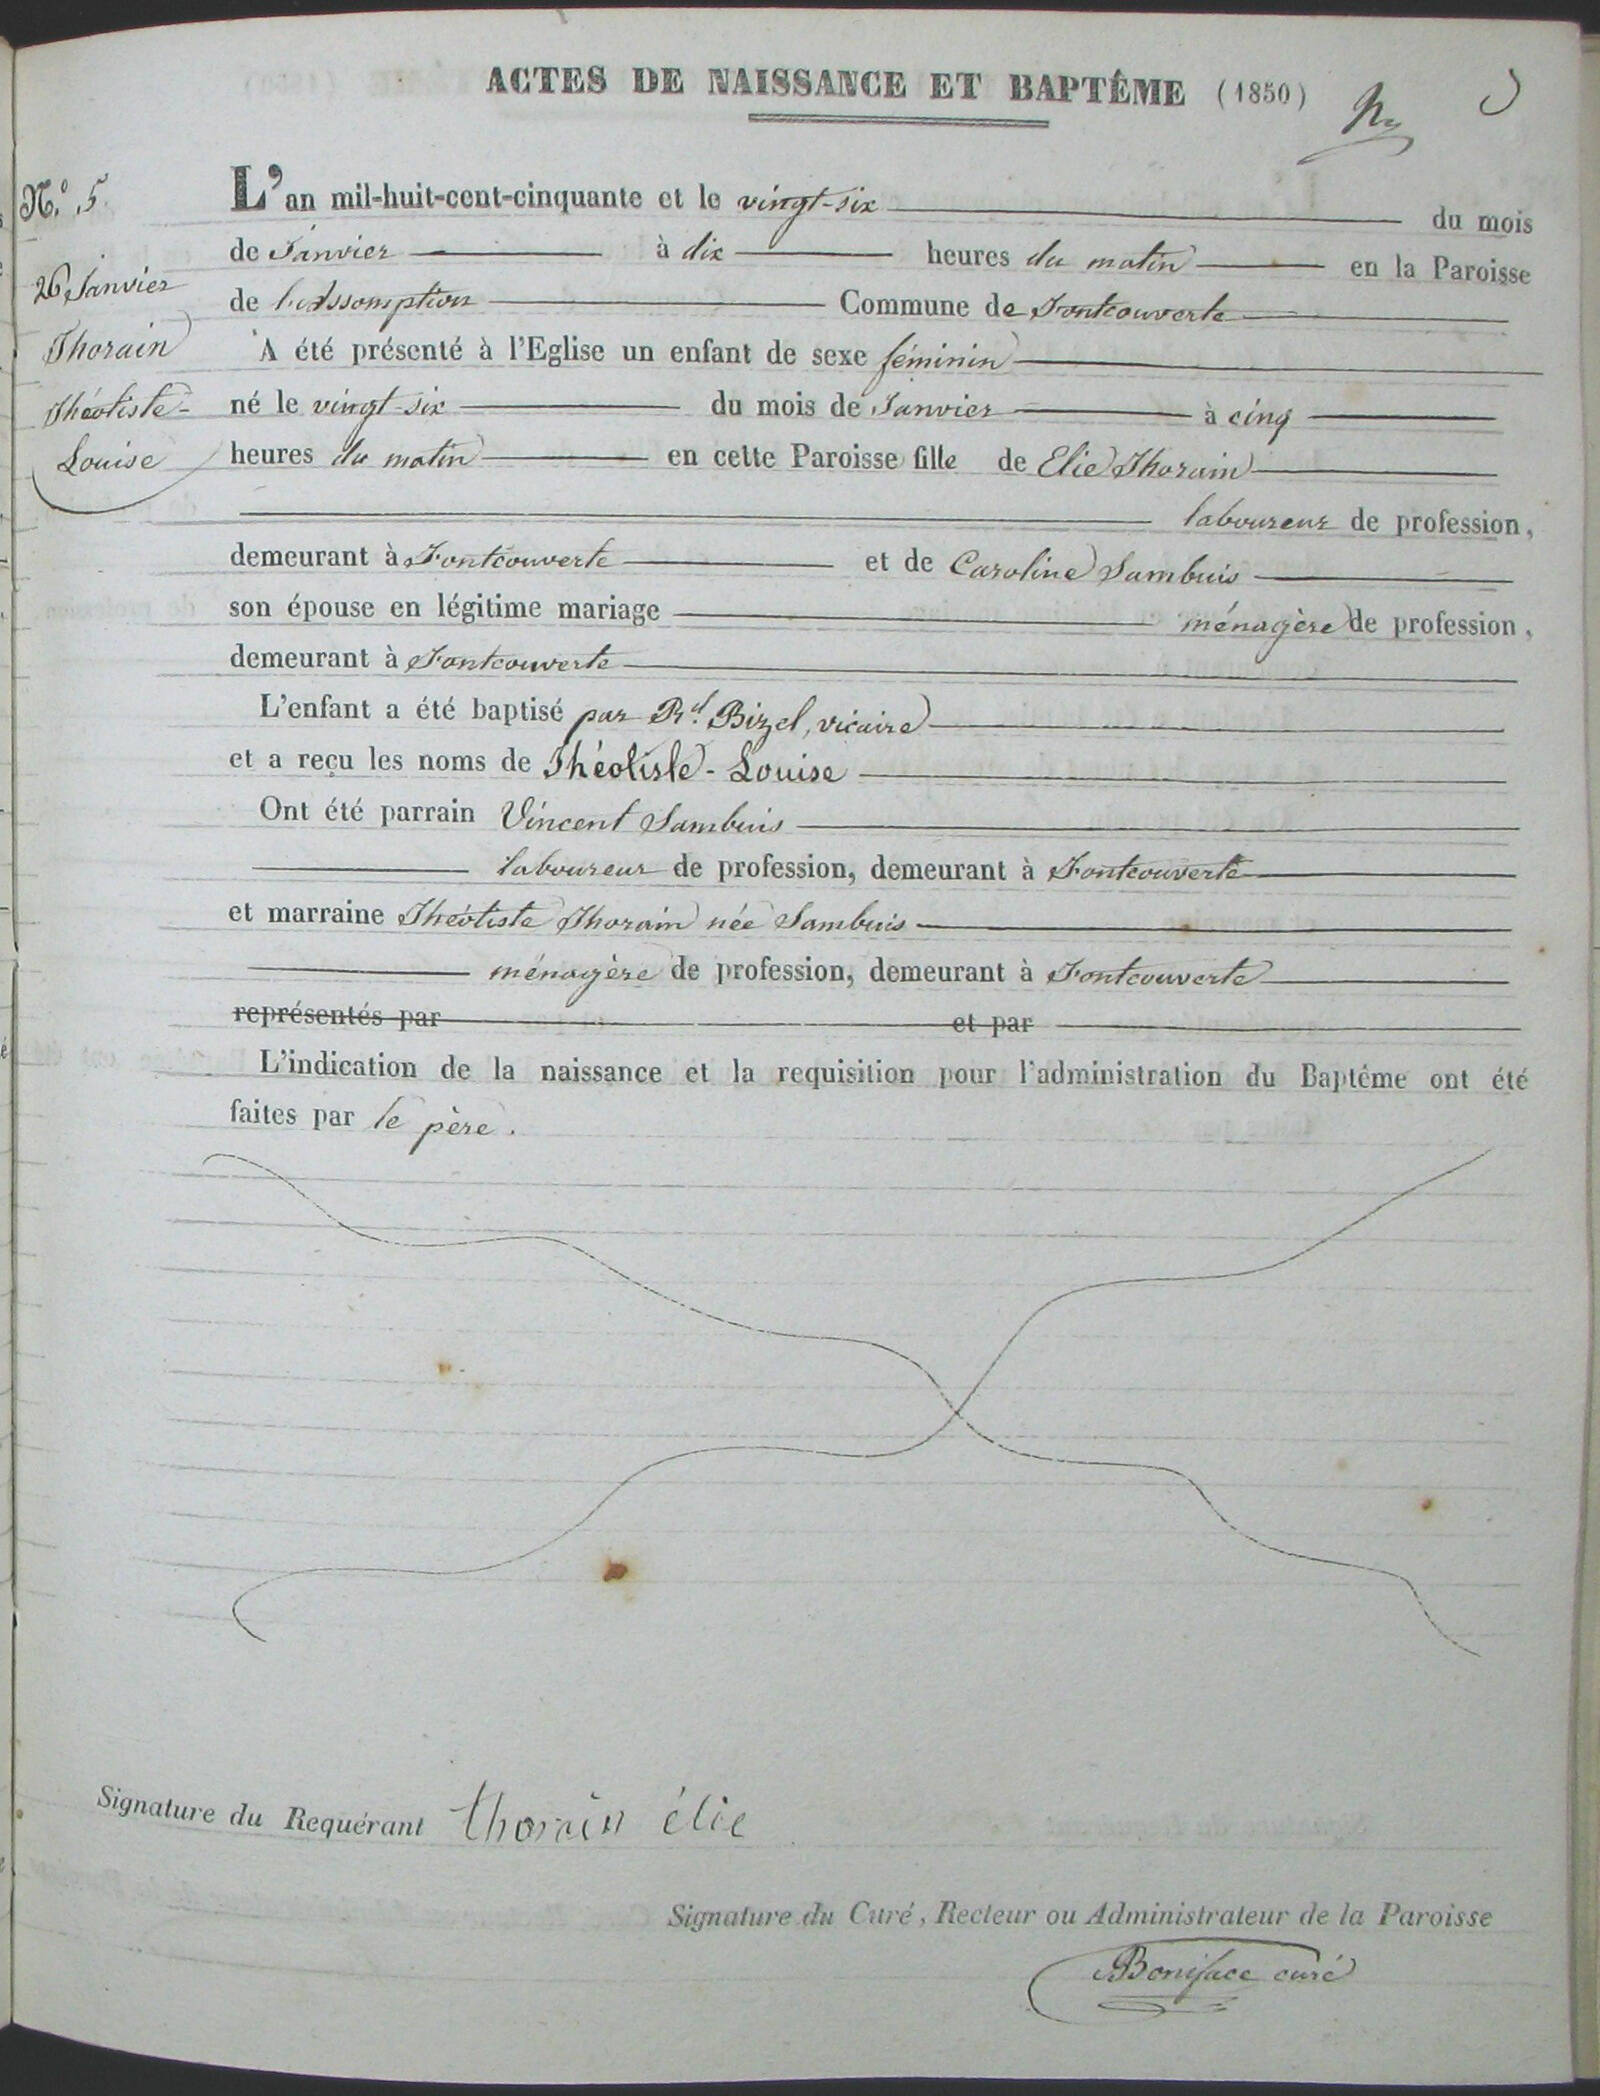 ACTES DE NAISSANCE ET BAPTÊME (1850)
N.° 5
26 Janvier
Thorain
Théotiste-
Louise
L'an mil-huit-cent-cinquante et le vingt-six du mois
de Janvier à dix heures du matin en la Paroisse
de l'assomption Commune de Fontcouverte
A été présenté à l'Eglise un enfant de sexe féminin
né le vingt-six du mois de Janvier à cinq
heures du matin en cette Paroisse fille de Elie Thorain
laboureur de profession,
demeurant à Fontcouverte et de Caroline Sambuis
son épouse en légitime mariage ménagère de profession,
demeurant à Fontcouverte
L'enfant a été baptisé par Rd. Bizel, vicaire
et a reçu les noms de Théotiste-Louise
Ont été parrain Vincent Sambuis
laboureur de profession, demeurant à Fontcouverte
et marraine Théotiste Thorain née Sambuis
ménagère de profession, demeurant à Fontcouverte
représentés par et par
L'indication de la naissance et la requisition pour l'administration du Baptême ont été
faites par le père.
Signature du Requérant thorain élie
Signature du Curé, Recteur ou Administrateur de la Paroisse
Boniface curé